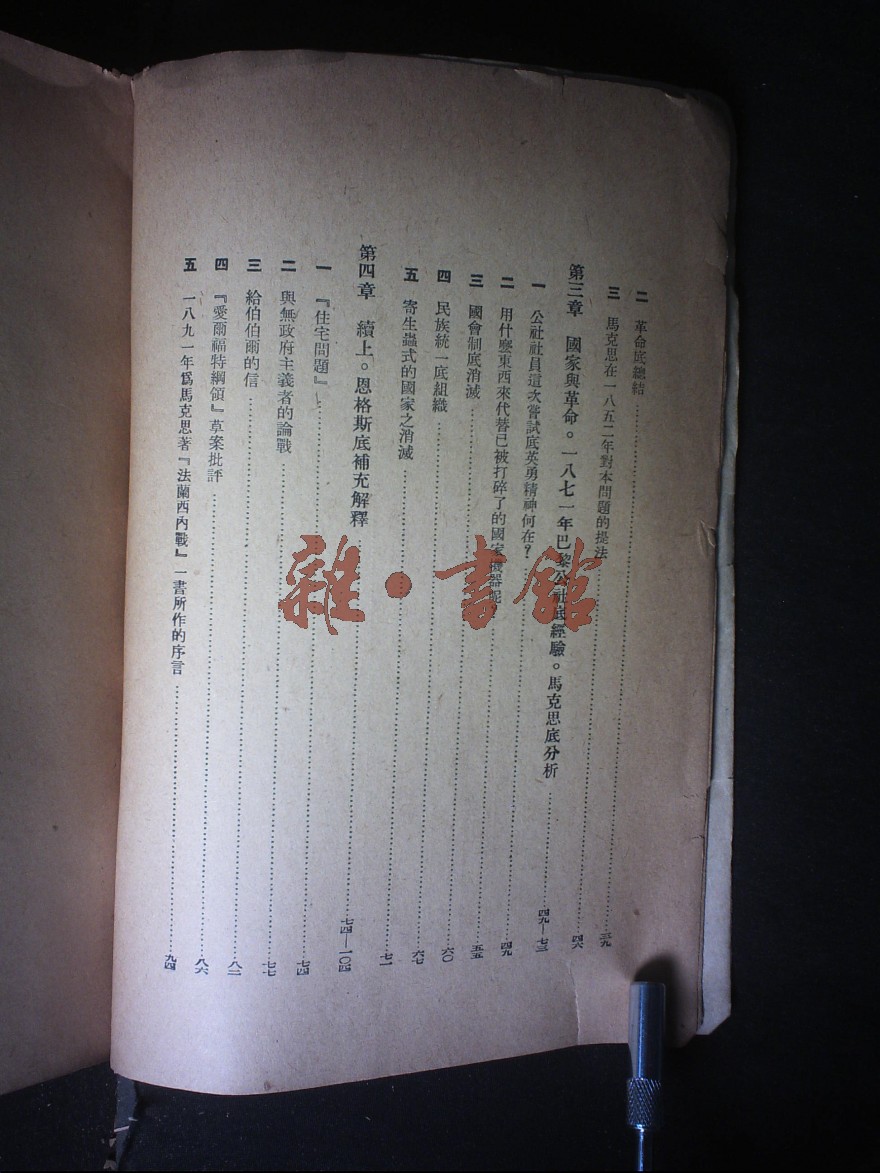 二 革命底總結 三九
三 馬克思在一八五二年對本問題的提法 四六
第三章 國家與革命。一八七一年巴黎公社底經驗。馬克思底分析 四九—七三
一 公社社員這次嘗試底英勇精神何在？ 四九
二 用什麼東西來代替已被打碎了的國家機器呢？ 五五
三 國會制底消滅 六〇
四 民族統一底組織 六七
五 寄生蟲式的國家之消滅 七一
第四章 續上。恩格斯底補充解釋 七四—一〇四
一 『住宅問題』 七四
二 與無政府主義者的論戰 七七
三 給伯伯爾的信 八二
四 『愛爾福特綱領』草案批評 八六
五 一八九一年爲馬克思著『法蘭西內戰』一書所作的序言 九四
雜·書館